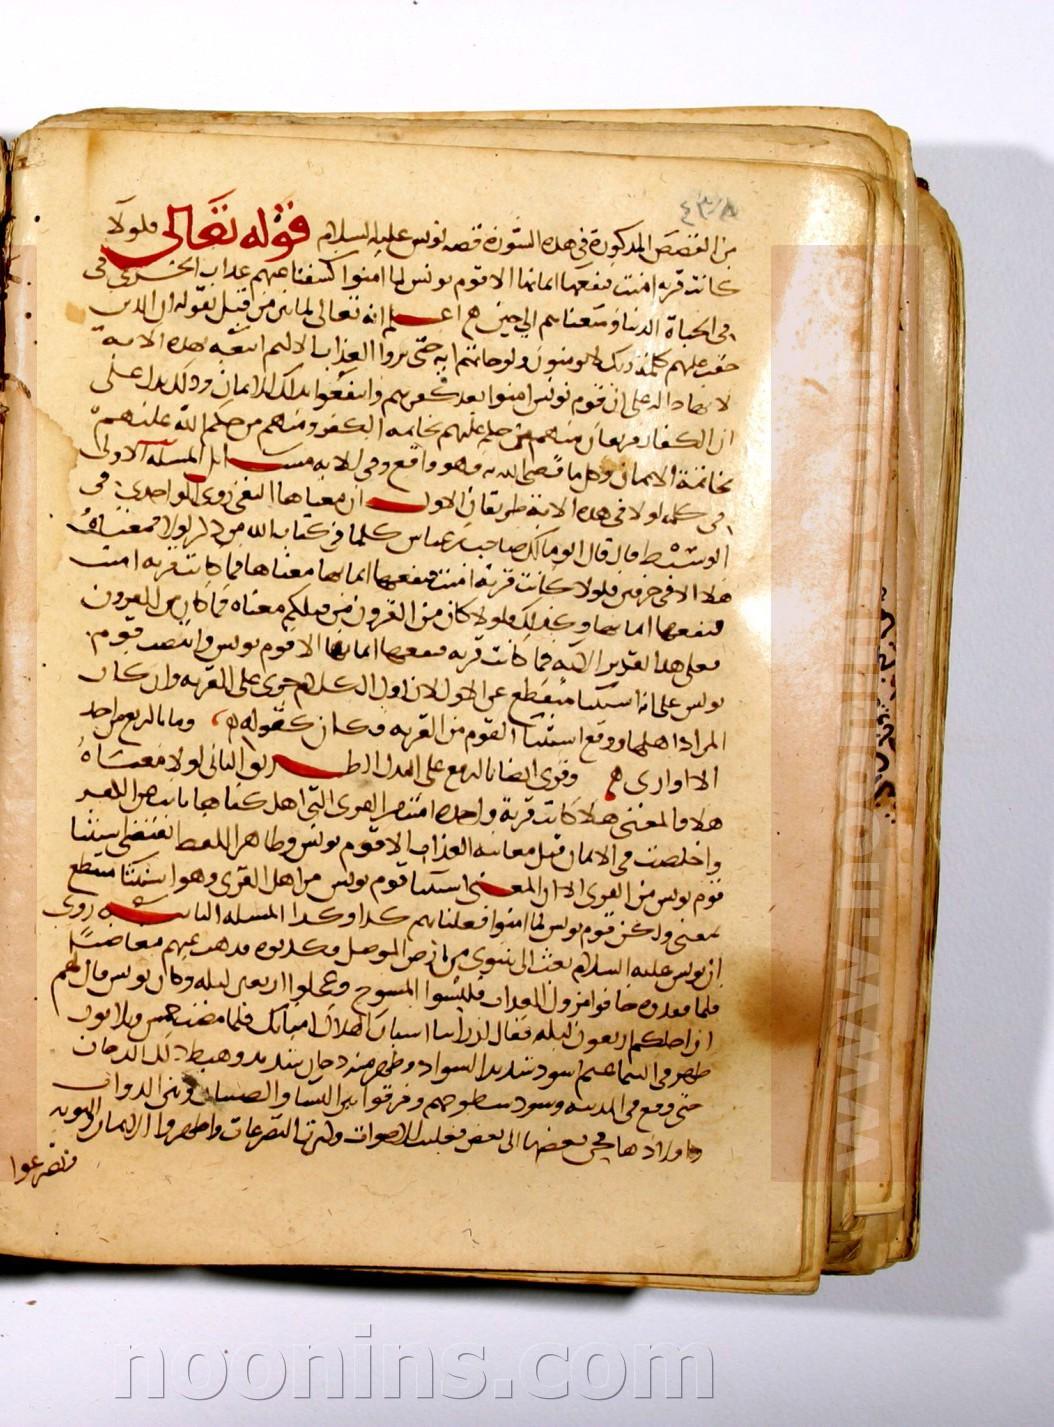 ٤٣٨
من القصص المذكورة في هذه السورة قصه يونس عليه السلام قوله تعالى فلولا
كانت قريه امنت فنفعها ايمانها الا قوم يونس لما امنوا كشفنا عنهم عذاب الخزي في
في الحياة الدنيا ومتعناهم الى حين اعلم انه تعالى لما بين من قبل بقوله ان الذين
حقت عليهم كلمة ربك لا يومنون ولو جاءتهم ايه حتى يروا العذاب الاليم اتبعه بهذه الايه
لانها داله على ان قوم يونس امنوا بعد كفرهم وانتفعوا بذلك الايمان وذلك يدل على
ان الكفار فريقان منهم من حكم عليهم بخاتمه الكفر ومنهم من حكم الله عليهم
بخاتمة الايمان وكل ما قضى الله به فهو واقع وفي الايه مسائل المسله الاولى
في كلمه لولا في هذه الاية طريقان الاول ان معناها النفي روى الواحدي في
الوسيط قال قال ابو مالك صاحب ابن عباس كلما في كتاب الله من ذكر لولا فمعناه
هلا الا في حرفين فلولا كانت قرية امنت فنفعها ايمانها معناها فما كانت قريه امنت
فنفعها ايمانها وكذلك فلولا كان من القرون من قبلكم معناه فما كان من القرون
فعلى هذا تقدير الايه فما كانت قريه فنفعها ايمانها الا قوم يونس وانتصب قوم
يونس على انه استثنا منقطع عن الاول لان اول الكلام جرى على القريه وان كان
المراد اهلها ووقع استثنا القوم من القريه فكان كقوله وما بالربع من احد
الا اواري وقرى ايضا بالرفع على البدل الطريق الثاني لولا معناه
هلا والمعنى هلا كانت قرية واحده امنت من القرى التي اهلكناها
واخلصت في الايمان قبل معاينه العذاب الا قوم يونس وظاهر اللفظ يقتضي استثنا
قوم يونس من القرى الا ان المعنى استثنا قوم يونس من اهل القرى وهو استثنا منقطع
بمعنى ولكن قوم يونس لما امنوا فعلنا بهم كذا وكذا المسله الثانيه روي
ان يونس عليه السلام بعث الى نينوى من ارض الموصل فكذبوه فذهب عنهم مغاضبا
فلما فقدوه خافوا نزول العذاب فلبسوا المسوح وعجلوا اربعين ليله وكان يونس قال لهم
ان اجلكم اربعون ليله فقالوا ان راينا اسباب الهلاك امنا بك فلما مضت خمس وثلاثون
ظهر في السما غيم اسود شديد السواد وظهر منه دخان شديد وهبط ذلك الدخان
حتى وقع في المدينه وسود سطوحهم وفرقوا بين النسا والصبيان وبين الدواب
واولادها فحن بعضها الى بعض فعلت الاصوات وكثرت التضرعات واظهروا الايمان والتوبه
فتضرعوا
noonins.com